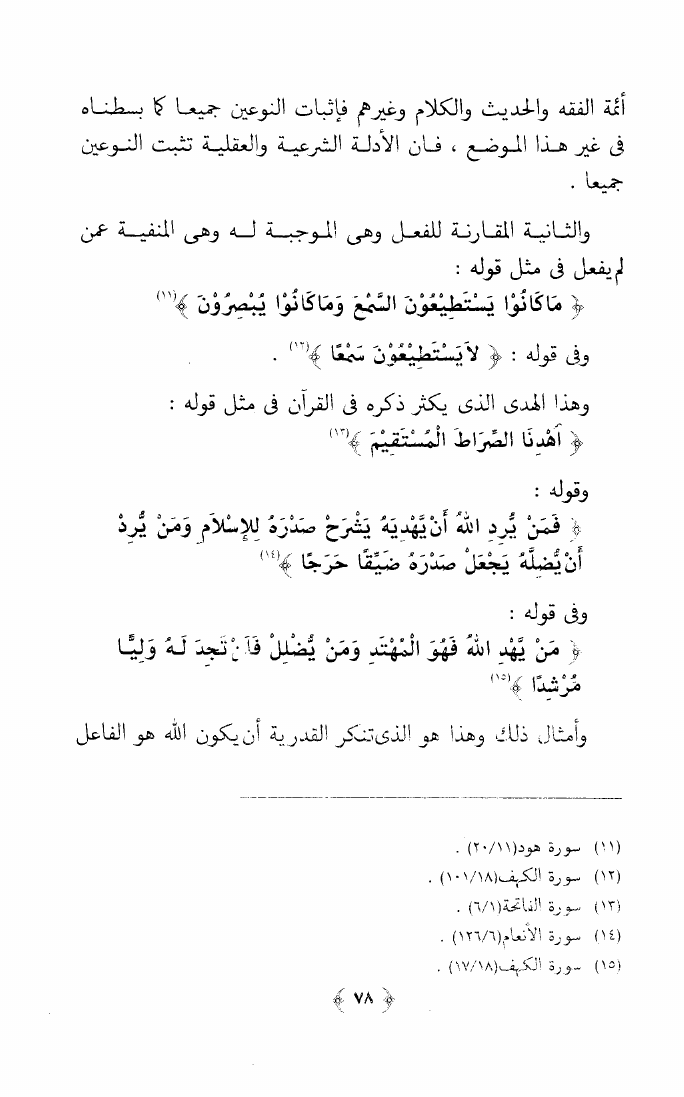 أئمة الفقه والحديث والكلام وغيرهم فإثبات النوعين جميعا كما بسطناه
فى غير هذا الموضع ، فان الأدلة الشرعية والعقلية تثبت النوعين
جميعا .
والثانية المقارنة للفعل وهى الموجبة له وهى المنفية عمن
لم يفعل فى مثل قوله :
﴿ مَا كَانُوْا يَسْتَطِيْعُوْنَ السَّمْعَ وَمَا كَانُوْا يُبْصِرُوْنَ ﴾(١١)
وفى قوله : ﴿ لَا يَسْتَطِيْعُوْنَ سَمْعًا ﴾(١٢) .
وهذا الهدى الذى يكثر ذكره فى القرآن فى مثل قوله :
﴿ اَهْدِنَا الصِّرَاطَ الْمُسْتَقِيْمَ ﴾(١٣)
وقوله :
﴿ فَمَنْ يُّرِدِ اللهُ أَنْ يَّهْدِيَهُ يَشْرَحْ صَدْرَهُ لِلإِسْلَامِ وَمَنْ يُّرِدْ
أَنْ يُّضِلَّهُ يَجْعَلْ صَدْرَهُ ضَيِّقًا حَرَجًا ﴾(١٤)
وفى قوله :
﴿ مَنْ يَّهْدِ اللهُ فَهُوَ الْمُهْتَدِ وَمَنْ يُّضْلِلْ فَلَنْ تَجِدَ لَهُ وَلِيًّا
مُرْشِدًا ﴾(١٥)
وأمثال ذلك وهذا هو الذى تنكر القدرية أن يكون الله هو الفاعل
(١١) سورة هود(٢٠/١١) .
(١٢) سورة الكهف(١٠١/١٨) .
(١٣) سورة الفاتحة(٦/١) .
(١٤) سورة الأنعام(١٢٦/٦) .
(١٥) سورة الكهف(١٧/١٨) .
﴿ ٧٨ ﴾